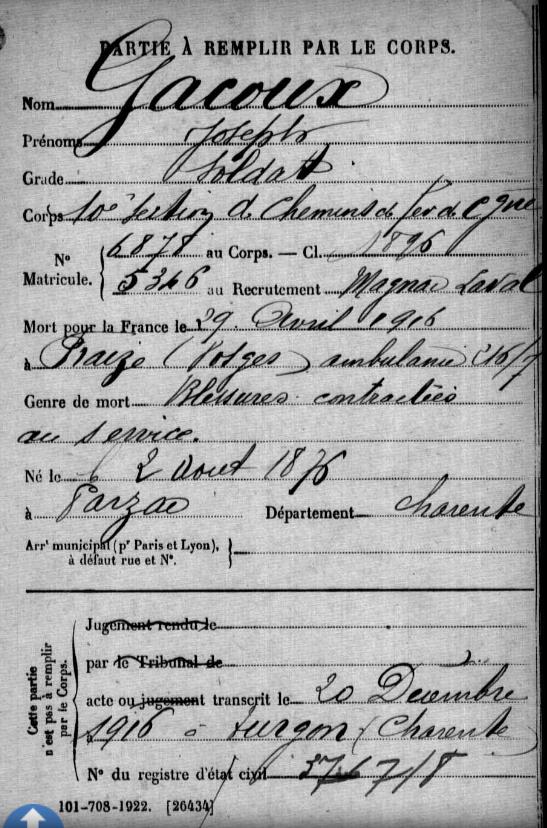 PARTIE À REMPLIR PAR LE CORPS.
Nom Gacoux
Prénoms Joseph
Grade Soldat
Corps 10e Section de Chemins de fer de Cgne
No Matricule. { 6878 au Corps. — Cl. 1896
5346 au Recrutement Magnac Laval
Mort pour la France le 19 Avril 1916
à Fraize (Vosges) ambulance
Genre de mort Blessures contractées
au service.
Né le 2 Aout 1876
à Parzac Département Charente
Arrt municipal (pr Paris et Lyon),
à défaut rue et No.
Cette partie n'est pas à remplir par le Corps.
Jugement rendu le
par le Tribunal de
acte ou jugement transcrit le 20 Décembre
1916 à Turgon (Charente)
No du registre d'état civil 7/8
101-708-1922. [26434]